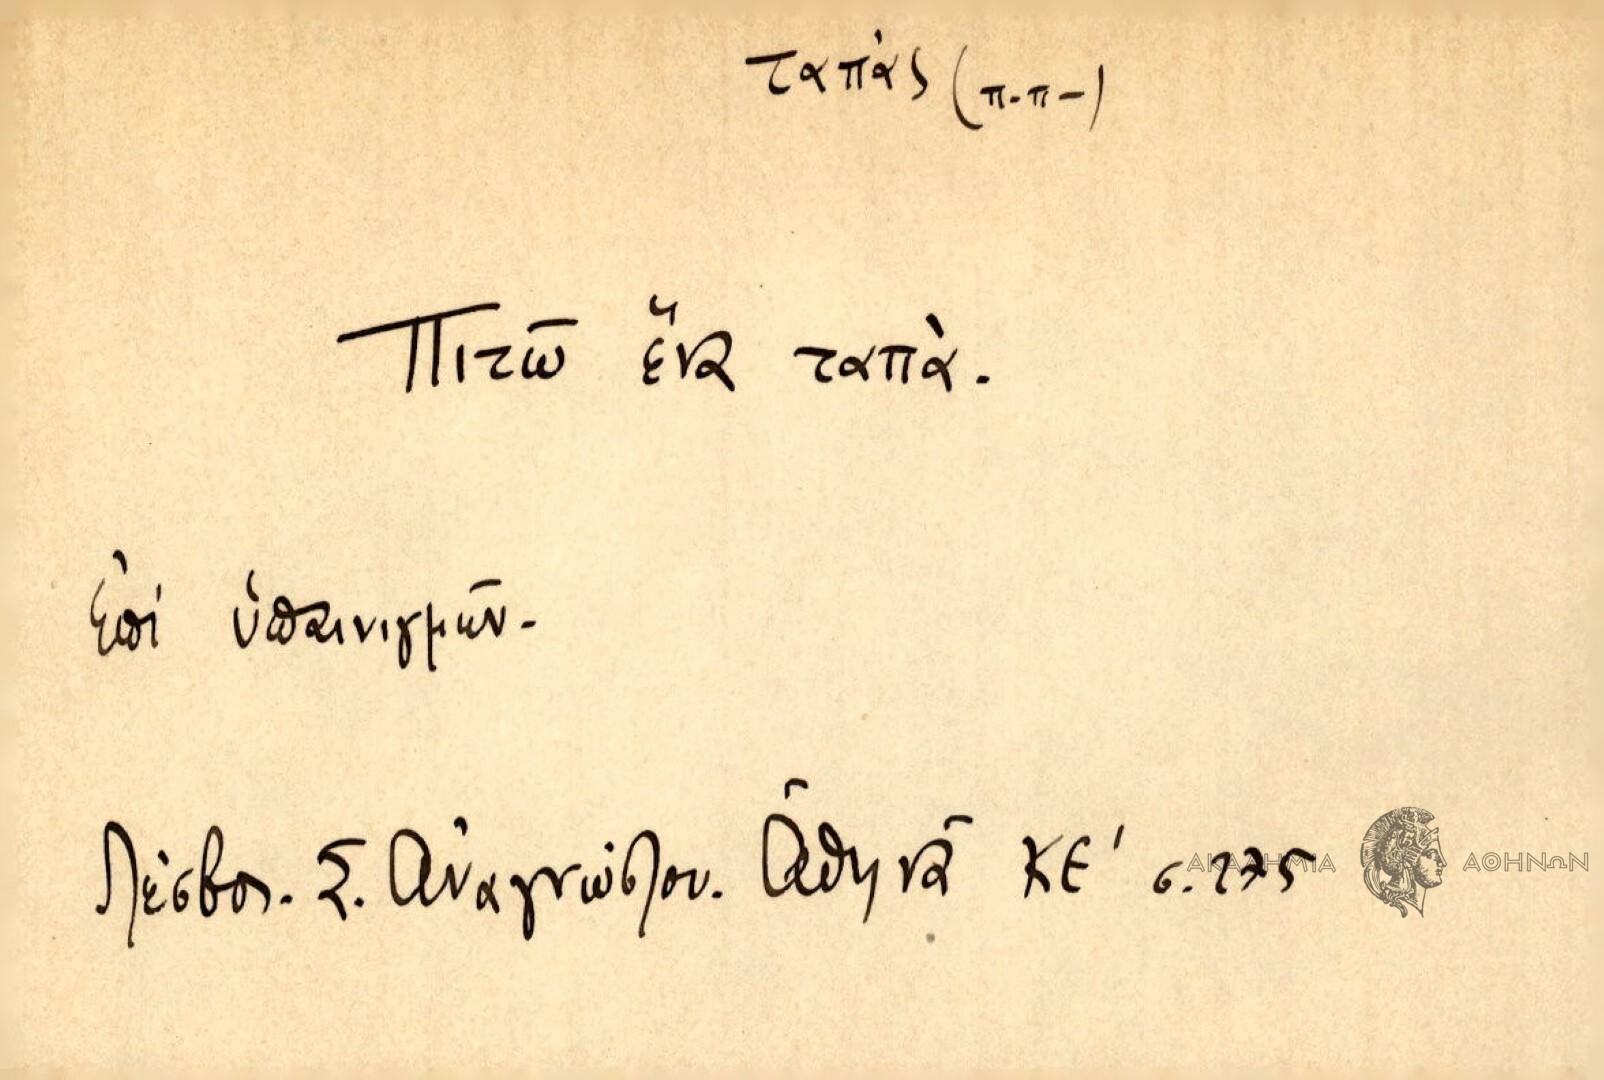 ταπάς (π.π-)
Πιτῶ ἕνα ταπά.
Ἐπί ὑπαινιγμῶν.
Λέσβος. Σ. Ἀναγνώστου. Ἀθηνᾶ ΚΕ' σ. 275
ΑΚΑΔΗΜΙΑ ΑΘΗΝΩΝ